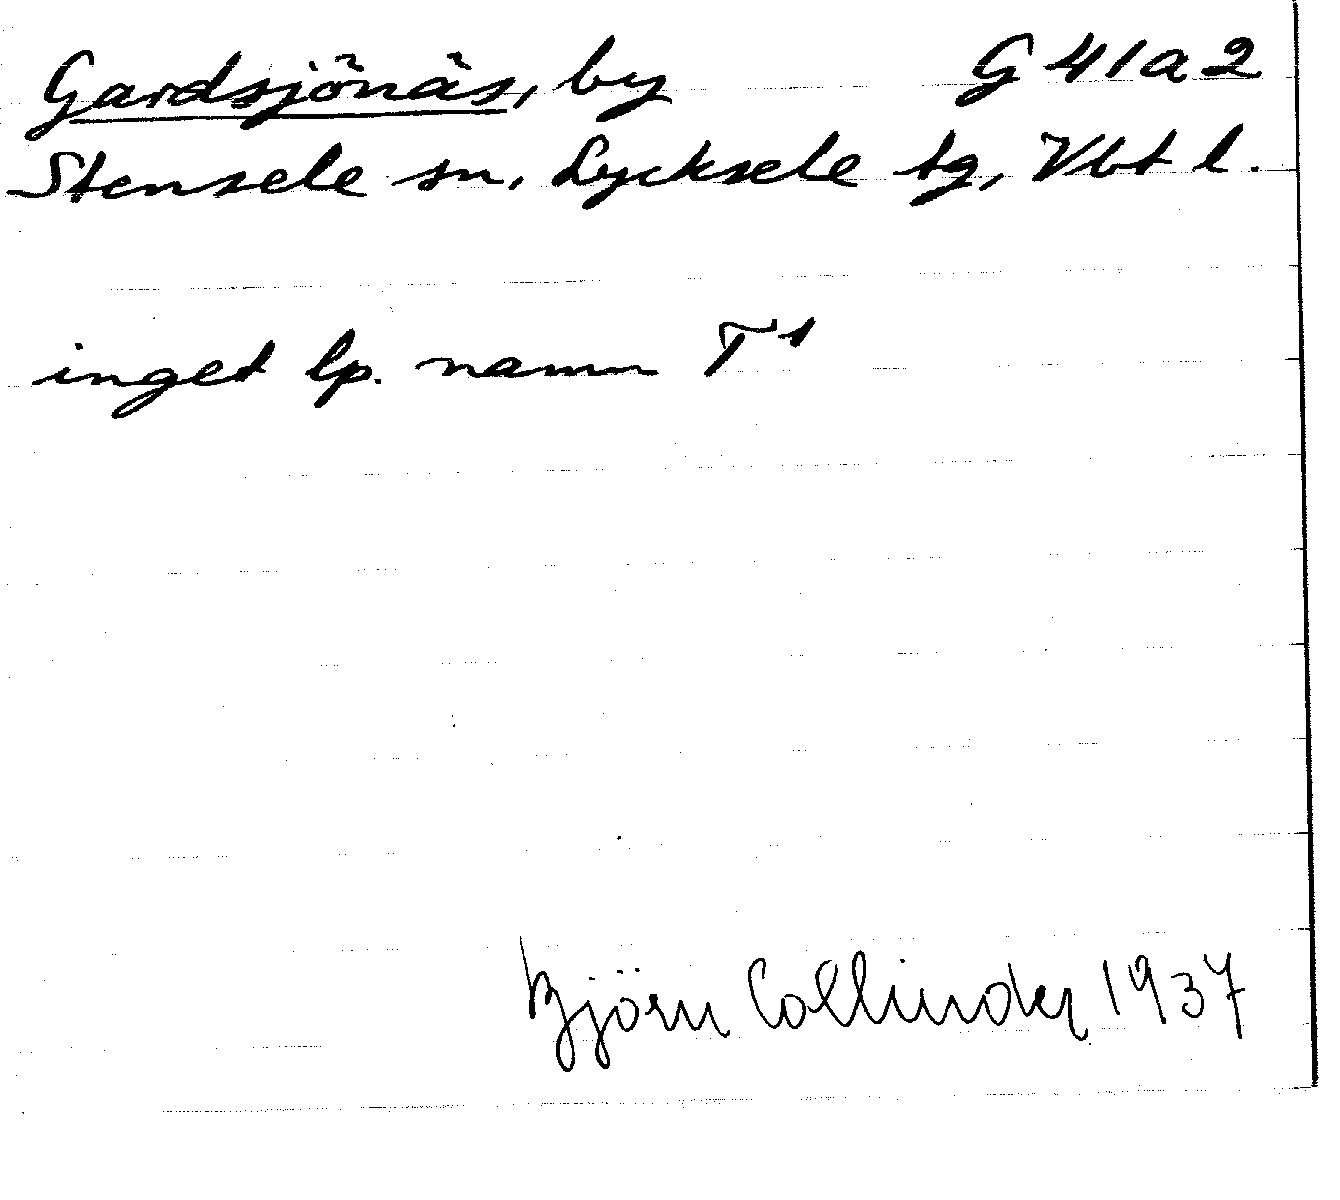 Gardsjönäs, by G 41 a 2
Stensele sn, Lycksele tg, Vbt l.
inget lp. namn T¹
Björn Collinder 1937